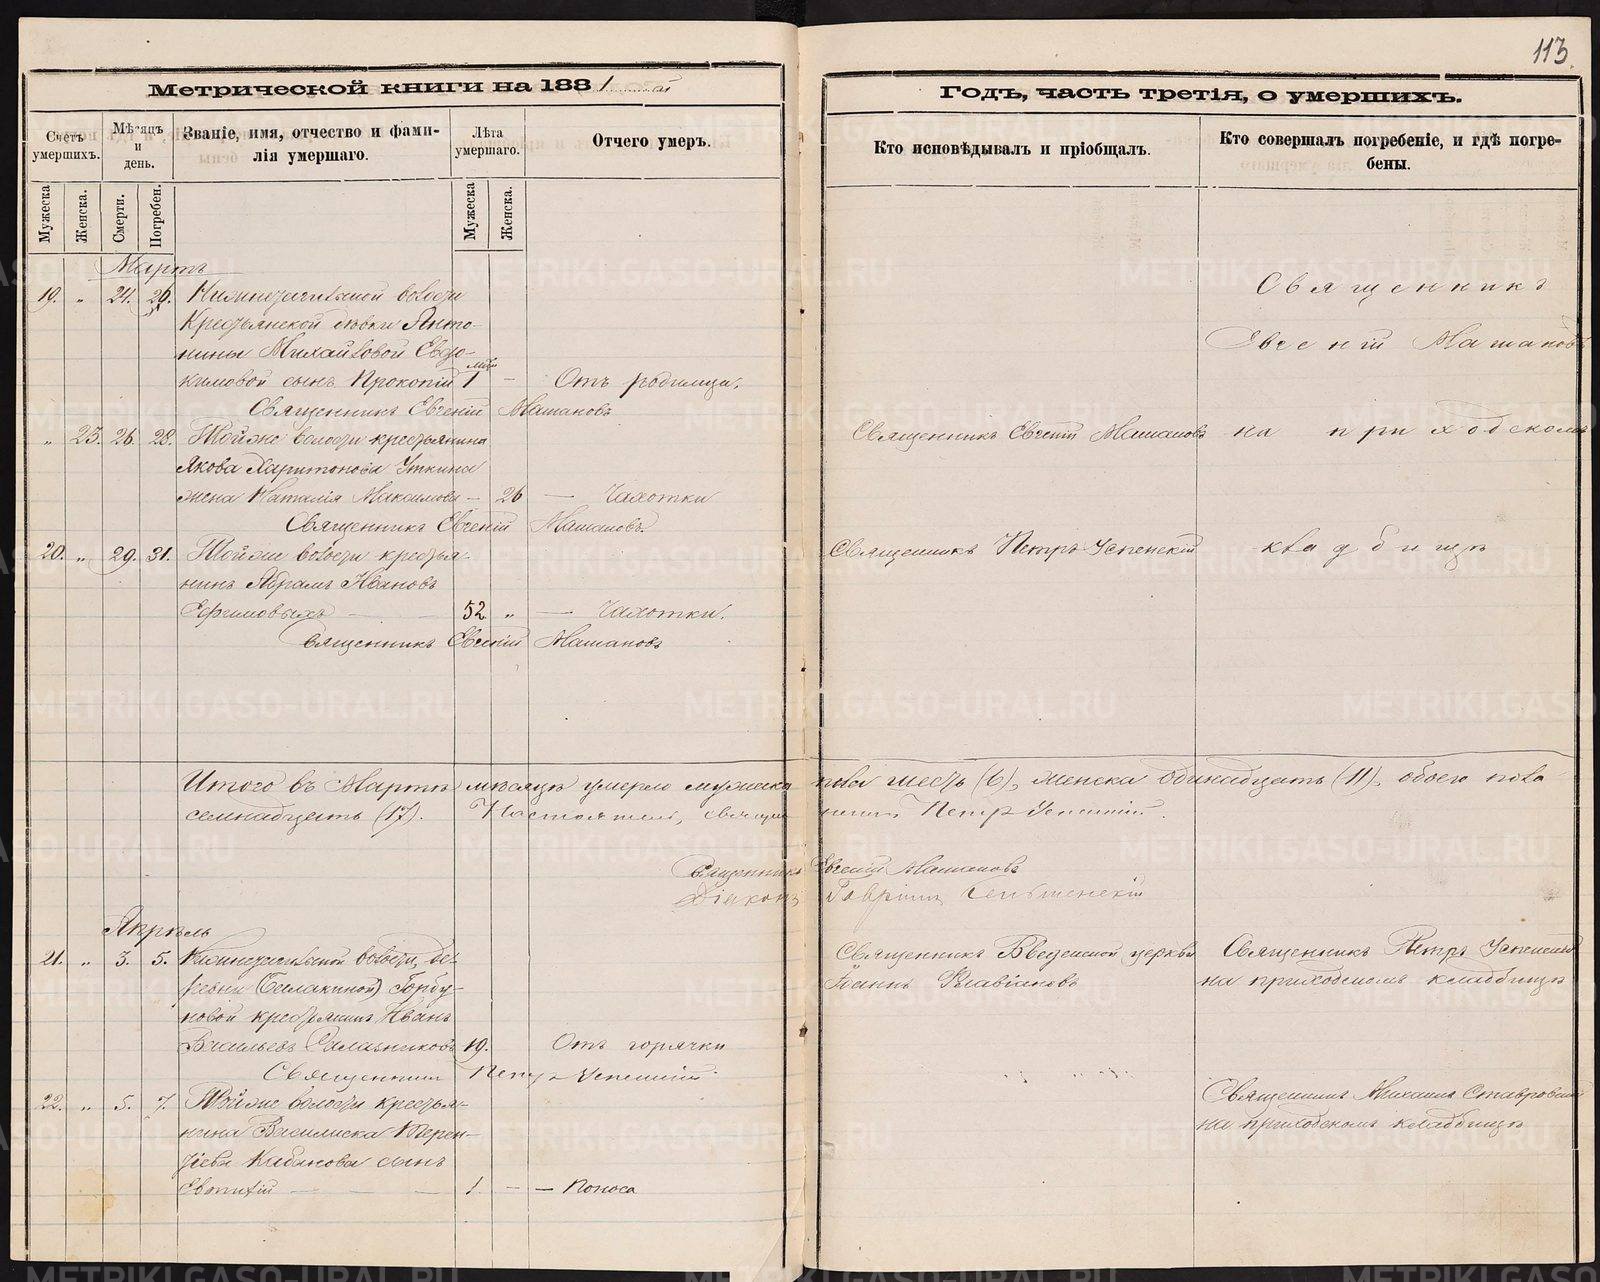 113.
Метрической книги на 1881
Годъ, часть третія, о умершихъ.
Счетъ умершихъ.
Мѣсяцъ и день.
Званіе, имя, отчество и фами-
лія умершаго.
Лѣта умершаго.
Отчего умеръ.
Кто исповѣдывалъ и пріобщалъ.
Кто совершалъ погребеніе, и гдѣ погре-
бены.
Мужеска
Женска.
Смерти.
Погребен.
Мужеска
Женска.
Мартъ
19. " 24. 26. волости
Крестьянской дѣвки Анто-
нины Михайловой Евдо-
кимовой сынъ Прокопій 1 — Отъ родимца.
Священникъ Евгеній Машановъ
" 23. 26. 28. Тойже волости крестьянина
Якова Харитонова Уткина
жена Наталія Максимова — 26 — Чахотки
Священникъ Евгеній Машановъ
20. " 29. 31. Тойже волости крестья-
нинъ Абрамъ Ивановъ
Ефимовыхъ — 52 " — Чахотки.
Священникъ Евгеній Машановъ
Священникъ
Евгеній Машановъ
Священникъ Евгеній Машановъ на приходскомъ
Священникъ Петръ Успенскій кладбищѣ
Итого въ Мартѣ мѣсяцѣ умерло мужеска пола шесть (6), женска одинадцать (11), обоего пола
семнадцать (17). Настоятель, священникъ Петръ Успенскій.
Священникъ Евгеній Машановъ
Діаконъ Гавріилъ
Апрѣль
21. " 3. 5. волости, де-
ревни Горбу-
новой крестьянинъ Иванъ
Васильевъ 19. Отъ горячки
Священникъ Петръ Успенскій
22. " 5. 7. Тойже волости крестья-
нина Василиска Терен-
тіева Кабакова сынъ
1. — — Поноса
Священникъ Введенской церкви
Іоаннъ Флавіановъ
Священникъ Петръ Успенскій
на приходскомъ кладбищѣ
Священникъ Михаилъ Ставровскій
на приходскомъ кладбищѣ
METRIKI.GASO-URAL.RU